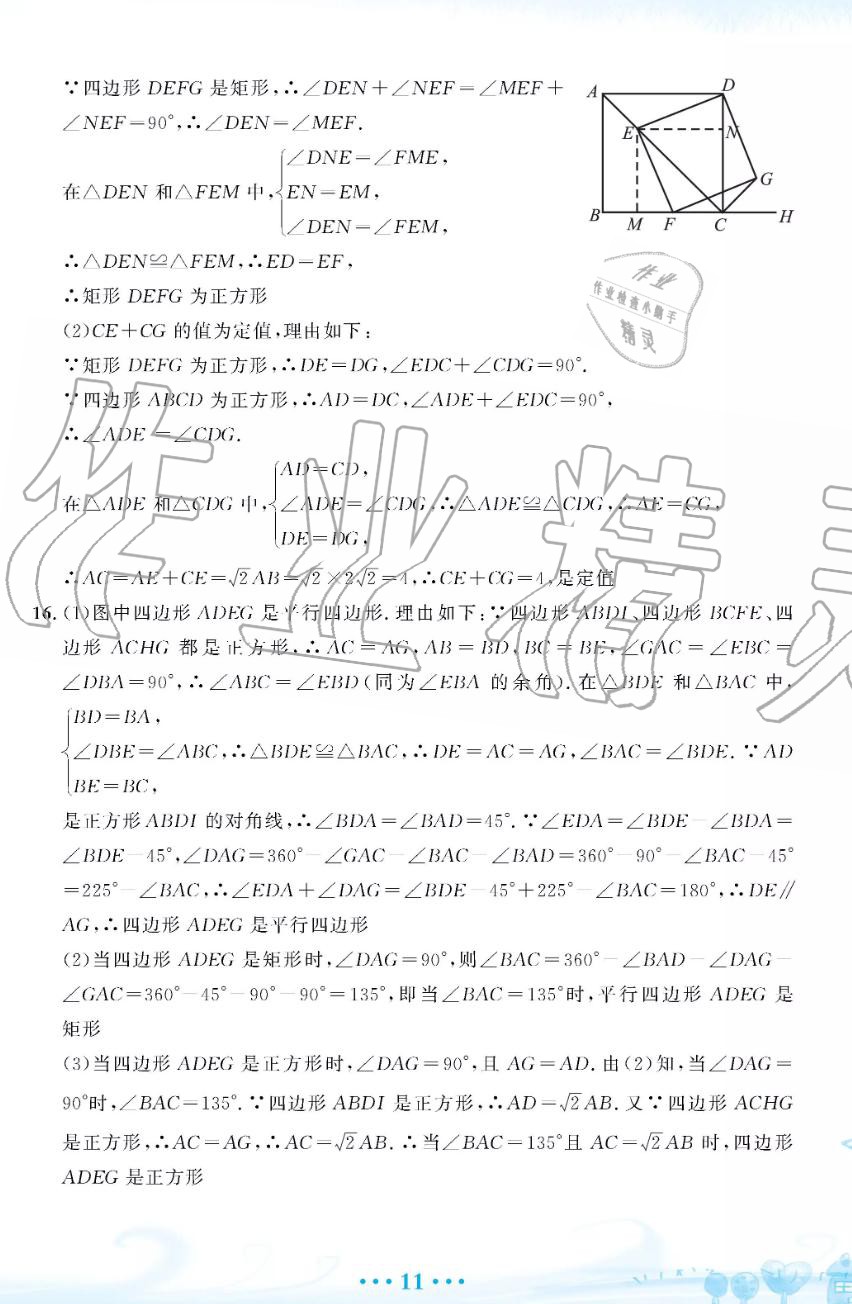 ∵四边形 DEFG 是矩形,∴∠DEN+∠NEF=∠MEF+
∠NEF=90°,∴∠DEN=∠MEF.
在△DEN 和△FEM 中,{∠DNE=∠FME,
EN=EM,
∠DEN=∠FEM,
∴△DEN≌△FEM,∴ED=EF,
∴矩形 DEFG 为正方形
A
D
E
N
G
B
M
F
C
H
作业
作业检查小助手
精灵
(2)CE+CG 的值为定值,理由如下:
∵矩形 DEFG 为正方形,∴DE=DG,∠EDC+∠CDG=90°.
∵四边形 ABCD 为正方形,∴AD=DC,∠ADE+∠EDC=90°,
∴∠ADE=∠CDG.
在△ADE 和△CDG 中,{AD=CD,
∠ADE=∠CDG,∴△ADE≌△CDG,∴AE=CG,
DE=DG,
∴AC=AE+CE=√2AB=√2×2√2=4,∴CE+CG=4,是定值
16.(1)图中四边形 ADEG 是平行四边形.理由如下:∵四边形 ABDI、四边形 BCFE、四
边形 ACHG 都是正方形,∴AC=AG,AB=BD,BC=BE,∠GAC=∠EBC=
∠DBA=90°,∴∠ABC=∠EBD(同为∠EBA 的余角).在△BDE 和△BAC 中,
{BD=BA,
∠DBE=∠ABC,∴△BDE≌△BAC,∴DE=AC=AG,∠BAC=∠BDE.∵AD
BE=BC,
是正方形 ABDI 的对角线,∴∠BDA=∠BAD=45°.∵∠EDA=∠BDE-∠BDA=
∠BDE-45°,∠DAG=360°-∠GAC-∠BAC-∠BAD=360°-90°-∠BAC-45°
=225°-∠BAC,∴∠EDA+∠DAG=∠BDE-45°+225°-∠BAC=180°,∴DE∥
AG,∴四边形 ADEG 是平行四边形
(2)当四边形 ADEG 是矩形时,∠DAG=90°,则∠BAC=360°-∠BAD-∠DAG-
∠GAC=360°-45°-90°-90°=135°,即当∠BAC=135°时,平行四边形 ADEG 是
矩形
(3)当四边形 ADEG 是正方形时,∠DAG=90°,且 AG=AD.由(2)知,当∠DAG=
90°时,∠BAC=135°.∵四边形 ABDI 是正方形,∴AD=√2AB.又∵四边形 ACHG
是正方形,∴AC=AG,∴AC=√2AB.∴当∠BAC=135°且 AC=√2AB 时,四边形
ADEG 是正方形
作业精灵
•••11•••